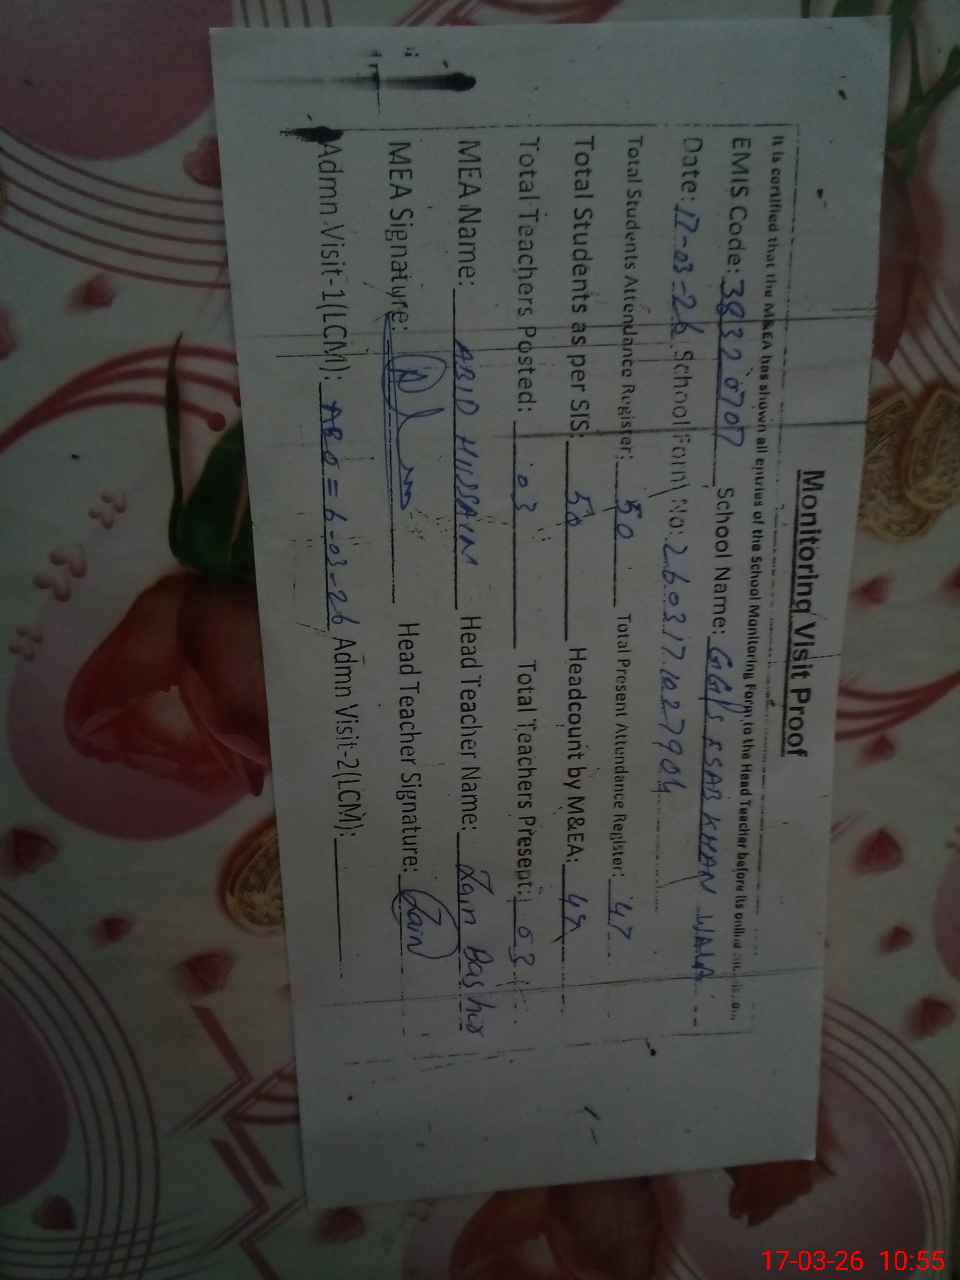 Monitoring Visit Proof
It is certified that the M&EA has shown all entries of the School Monitoring Form to the Head Teacher before its online
EMIS Code: 38320707 School Name: GGPS KSAB KHAN WALA
Date: 17-03-26 School Form No: 2603171027904
Total Students Attendance Register: 50 Total Present Attendance Register: 47
Total Students as per SIS: 50 Headcount by M&EA:
Total Teachers Posted: 03 Total Teachers Present: 03
MEA Name: ABID HUSSAIN Head Teacher Name: Zain Bashir
MEA Signature: Head Teacher Signature: Zain
Admn Visit-1(LCM): 6-03-26 Admn Visit-2(LCM):
17-03-26 10:55